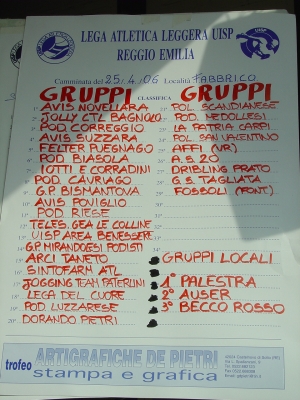 LEGA ATLETICA LEGGERA UISP
REGGIO EMILIA
Camminata del 25/4/06 Località FABBRICO
CLASSIFICA
GRUPPI
1° AVIS NOVELLARA
2° JOLLY CTL BAGNOLO
3° POD CORREGGIO
4° AVIS SUZZARA
5° FELTER PUEGNAGO
6° POD BIASOLA
7° IOTTI E CORRADINI
8° POD CAVRIAGO
9° G.P BISMANTOVA
10° AVIS POVIGLIO
11° POD RIESE
12° TELES. GEA LE COLLINE
13° UISP AREA BENESSERE
14° G.P. MIRANDOESI PODISTI
15° ARCI TANETO
16° SINTOFARM ATL
17° JOGGING TEAM PATERLINI
18° LEGA DEL CUORE
19° POD LUZZARESE
20° DORANDO PIETRI
GRUPPI
21° POL SCANDIANESE
22° POD. MEDOLLESI
23° LA PATRIA CARPI
24° POL SAN VALENTINO
25° AFFI (VR)
26° A.S. 20
27° DRIBLING PRATO
28° G.S. TAGLIATA
29° FOSSOLI (FONT)
GRUPPI LOCALI
1° PALESTRA
2° AUSER
3° BECCO ROSSO
trofeo
ARTIGRAFICHE DE PIETRI
stampa e grafica